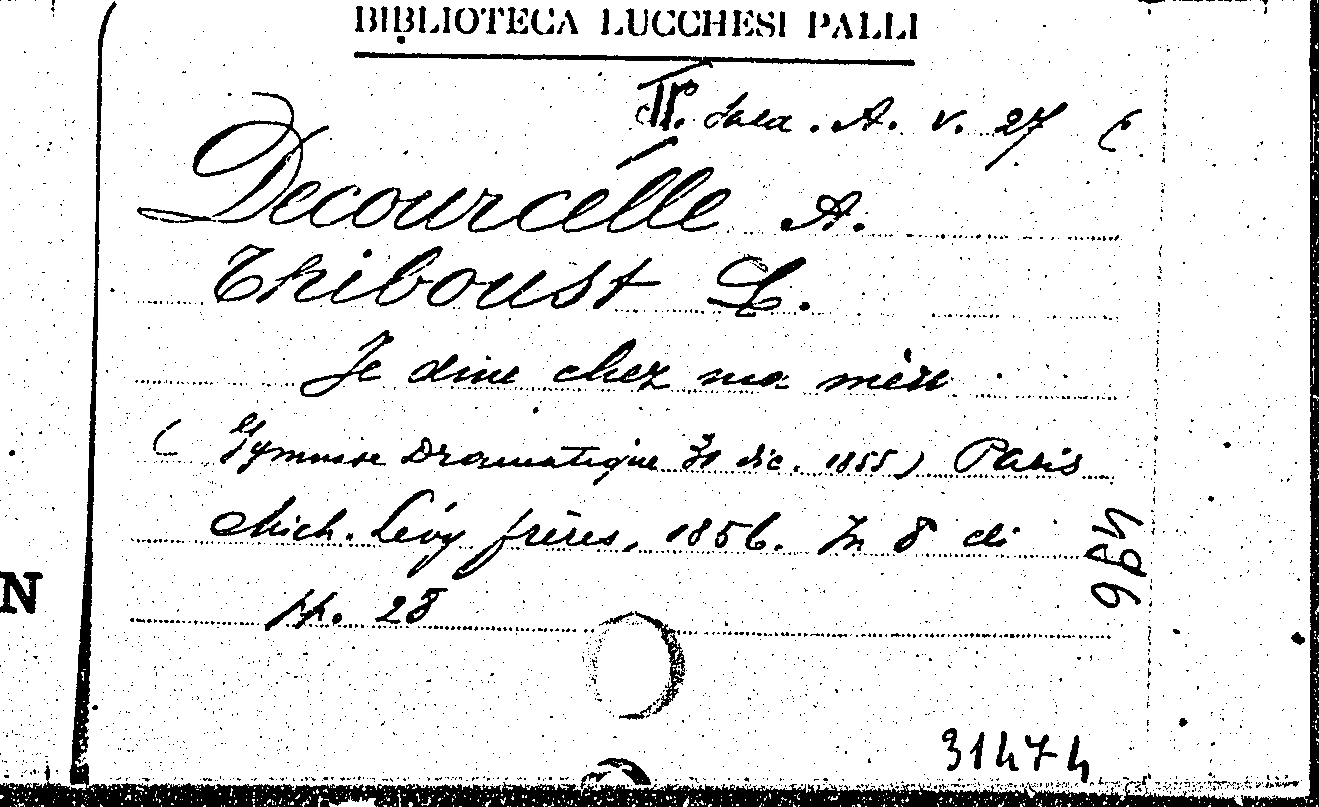 BIBLIOTECA LUCCHESI PALLI
II. Sala. A. V. 27 (6
Decourcelle A.
Thiboust L.
Je dine chez ma mère
(Gymnase Dramatique 31 dic. 1855) Paris
Mich. Lévy frères, 1856. In 8 di
pp. 28
31474
N